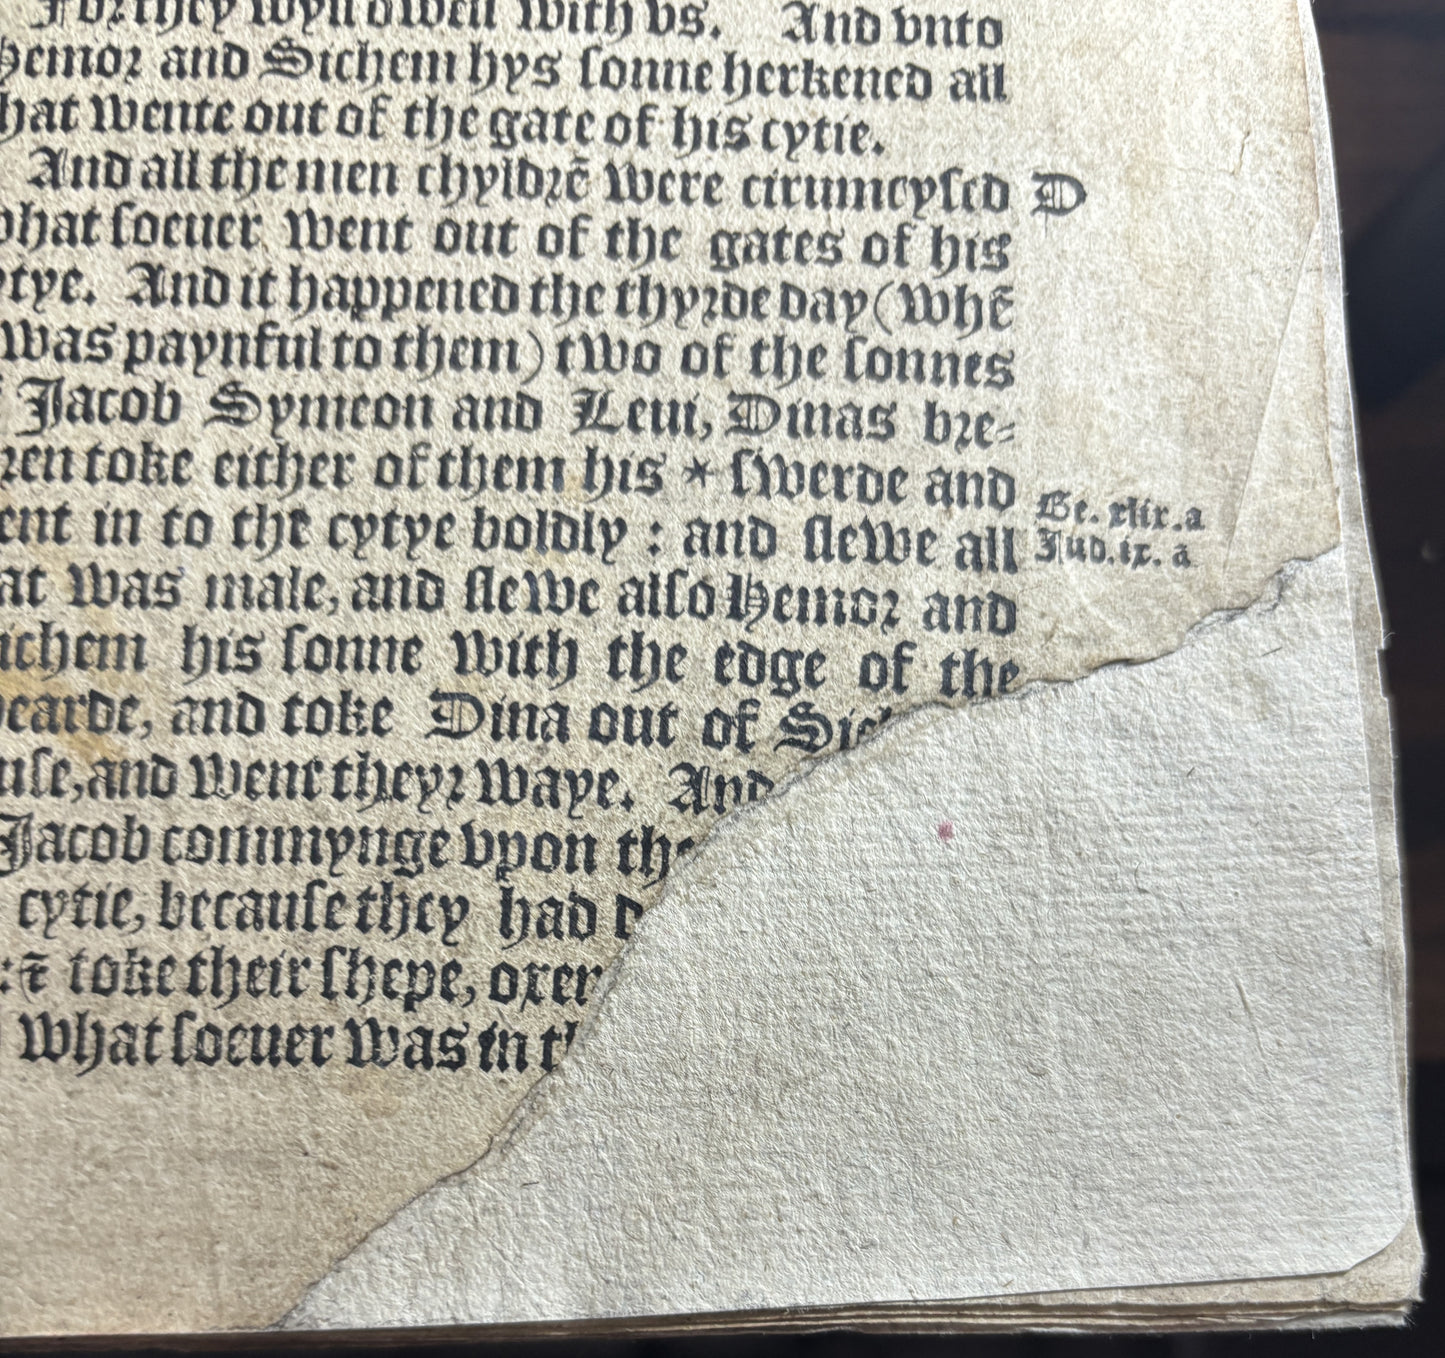 For they wyll dwell with vs. And vnto
Hemor and Sichem hys sonne herkened all
that wente out of the gate of his cytie.
And all the men chyldrē were circumcysed D
what soeuer went out of the gates of his
cytye. And it happened the thyrde day (whē
was paynful to them) two of the sonnes
Jacob Symeon and Leui, Dinas bre⸗
ren toke either of them his * swerde and
ent in to the cytye boldly : and slewe all
at was male, and slewe also Hemor and
ichem his sonne with the edge of the
earde, and toke Dina out of Sich
use, and went theyr waye. And
Jacob commynge vpon the
cytie, because they had d
: ē toke their shepe, oxen
what soeuer was in th
Ge. xlix. a
Jud. ix. a